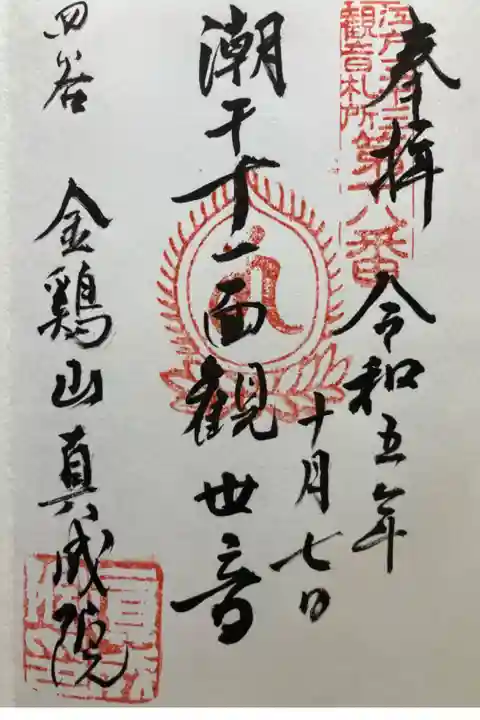 奉拝 令和五年
十月七日
江戸三十三
観音札所
第十八番
潮干十一面観世音
四谷 金鶏山真成院